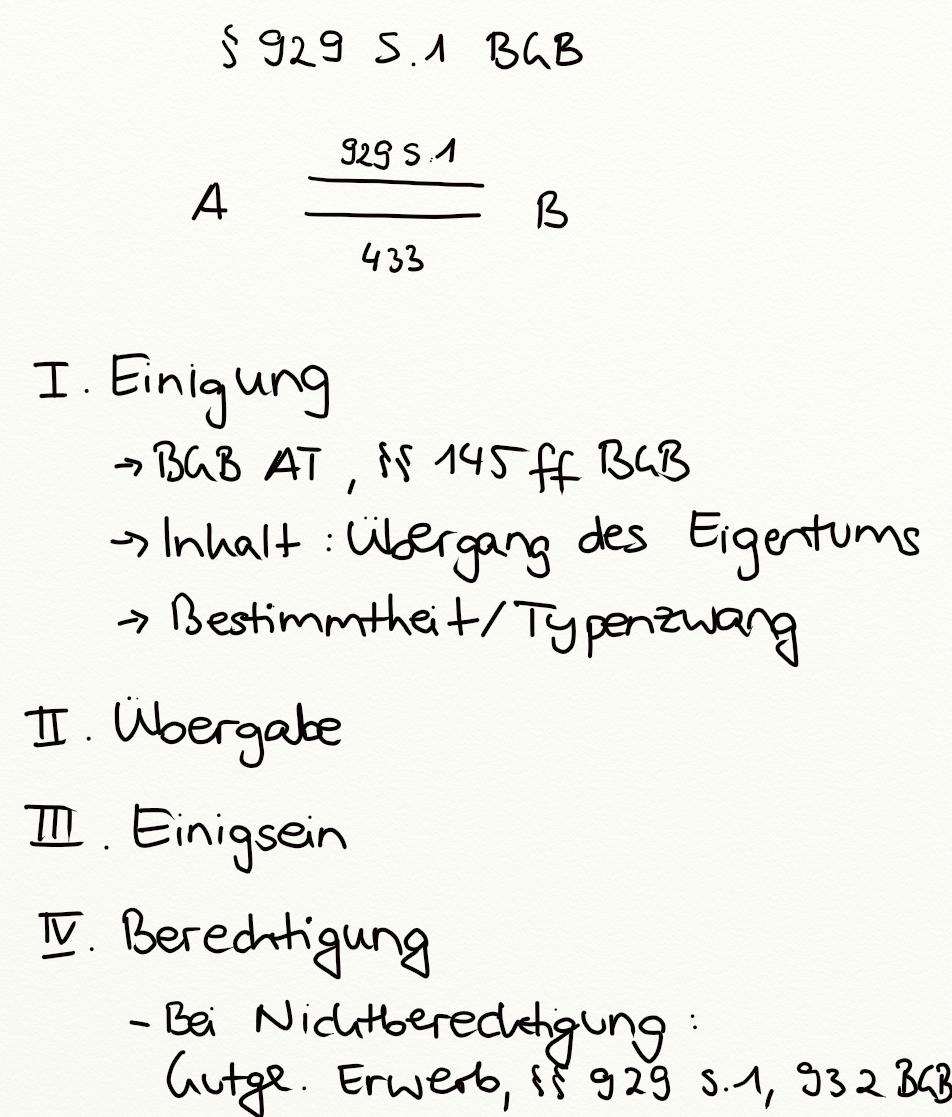 § 929 S.1 BGB
929 S.1
A B
433
I. Einigung
→ BGB AT, §§ 145 ff BGB
→ Inhalt : Übergang des Eigentums
→ Bestimmtheit/Typenzwang
II. Übergabe
III. Einigsein
IV. Berechtigung
- Bei Nichtberechtigung :
Gutgl. Erwerb, §§ 929 S.1, 932 BGB